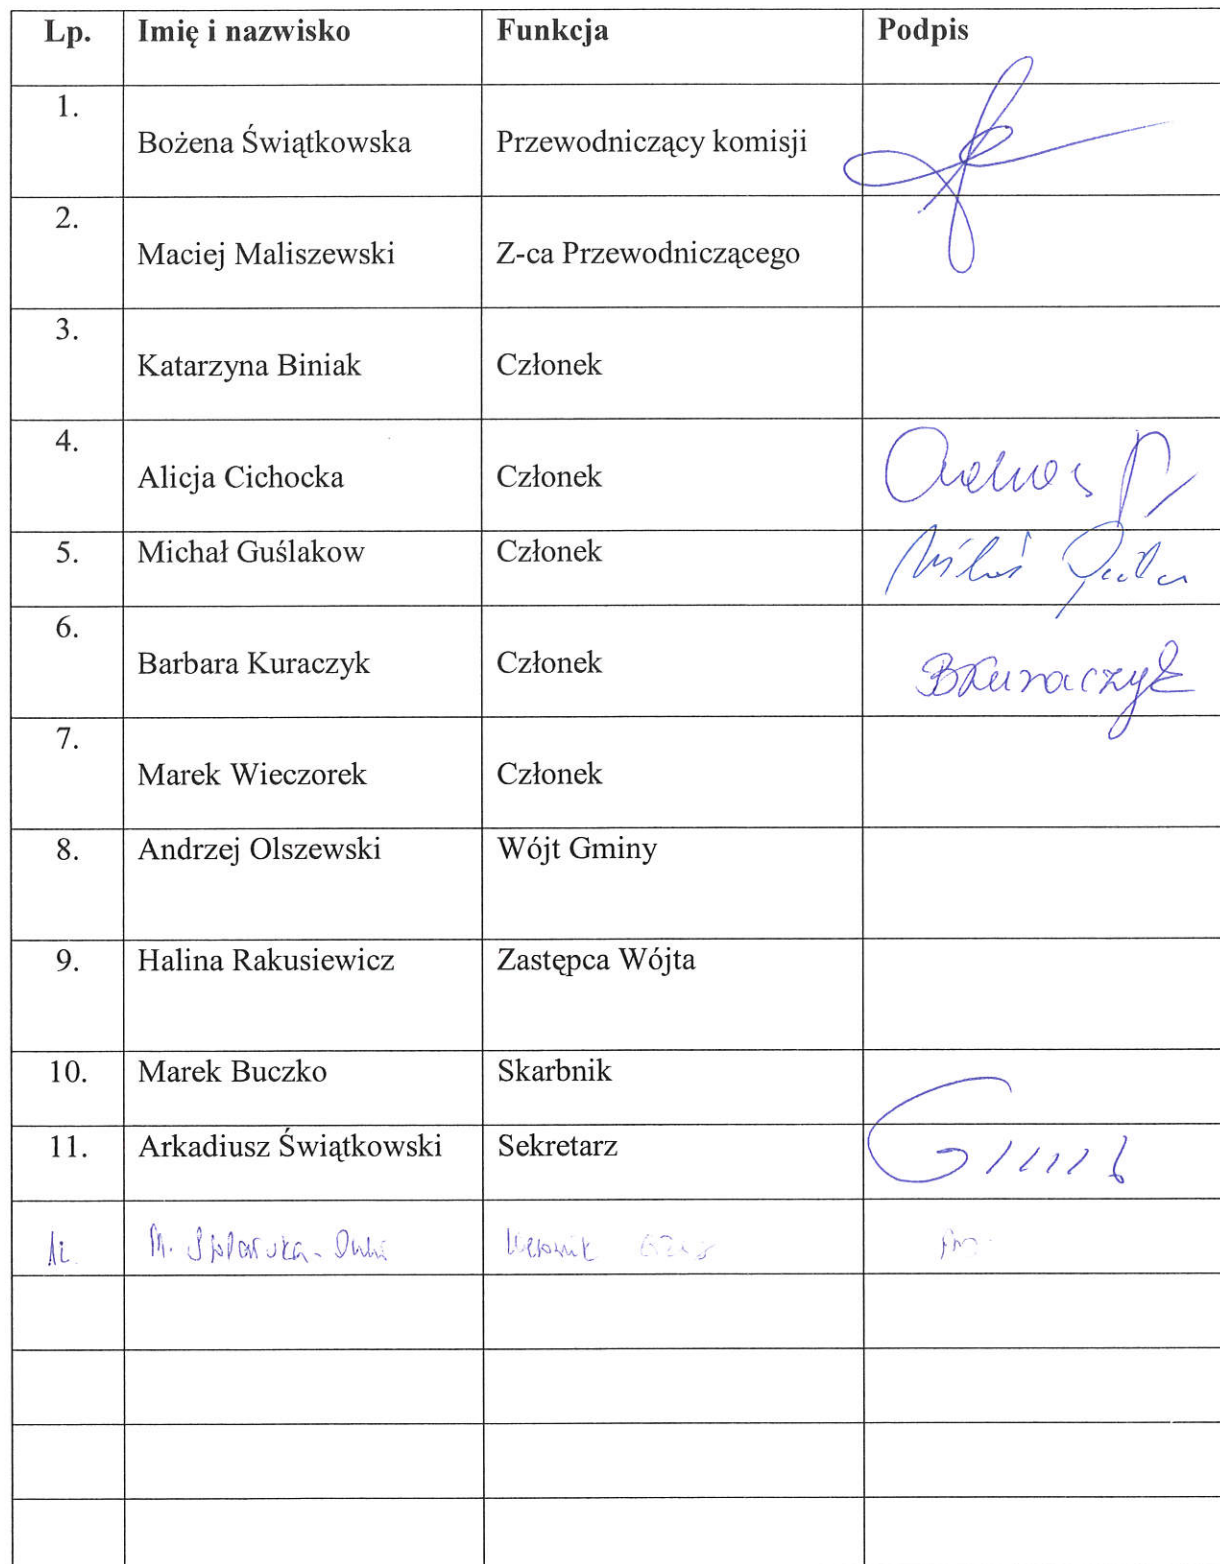 Lp. Imię i nazwisko Funkcja Podpis
1. Bożena Świątkowska Przewodniczący komisji
2. Maciej Maliszewski Z-ca Przewodniczącego
3. Katarzyna Biniak Członek
4. Alicja Cichocka Członek
5. Michał Guślakow Członek
6. Barbara Kuraczyk Członek BKuraczyk
7. Marek Wieczorek Członek
8. Andrzej Olszewski Wójt Gminy
9. Halina Rakusiewicz Zastępca Wójta
10. Marek Buczko Skarbnik
11. Arkadiusz Świątkowski Sekretarz
12. M. Kierownik